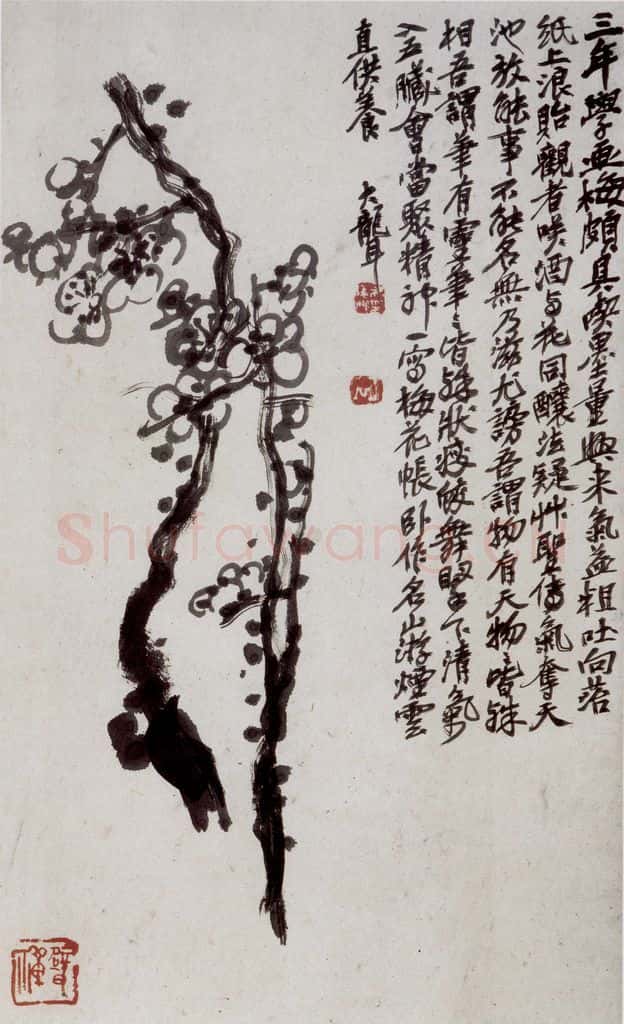 三年學画梅頗具喫墨量興来氣益粗吐向苔
紙上浪貽觀者咲酒与花同釀法疑艸聖傳氣奪天
池放能事不能名無乃滋尤謗吾謂物有天物〻皆殊
相吾謂筆有靈筆〻皆殊狀瘦蛟舞腕下清氣
入五臟會當聚精神一寫梅花帳卧作名山游煙雲
直供養 大聾
Shufawang.cn